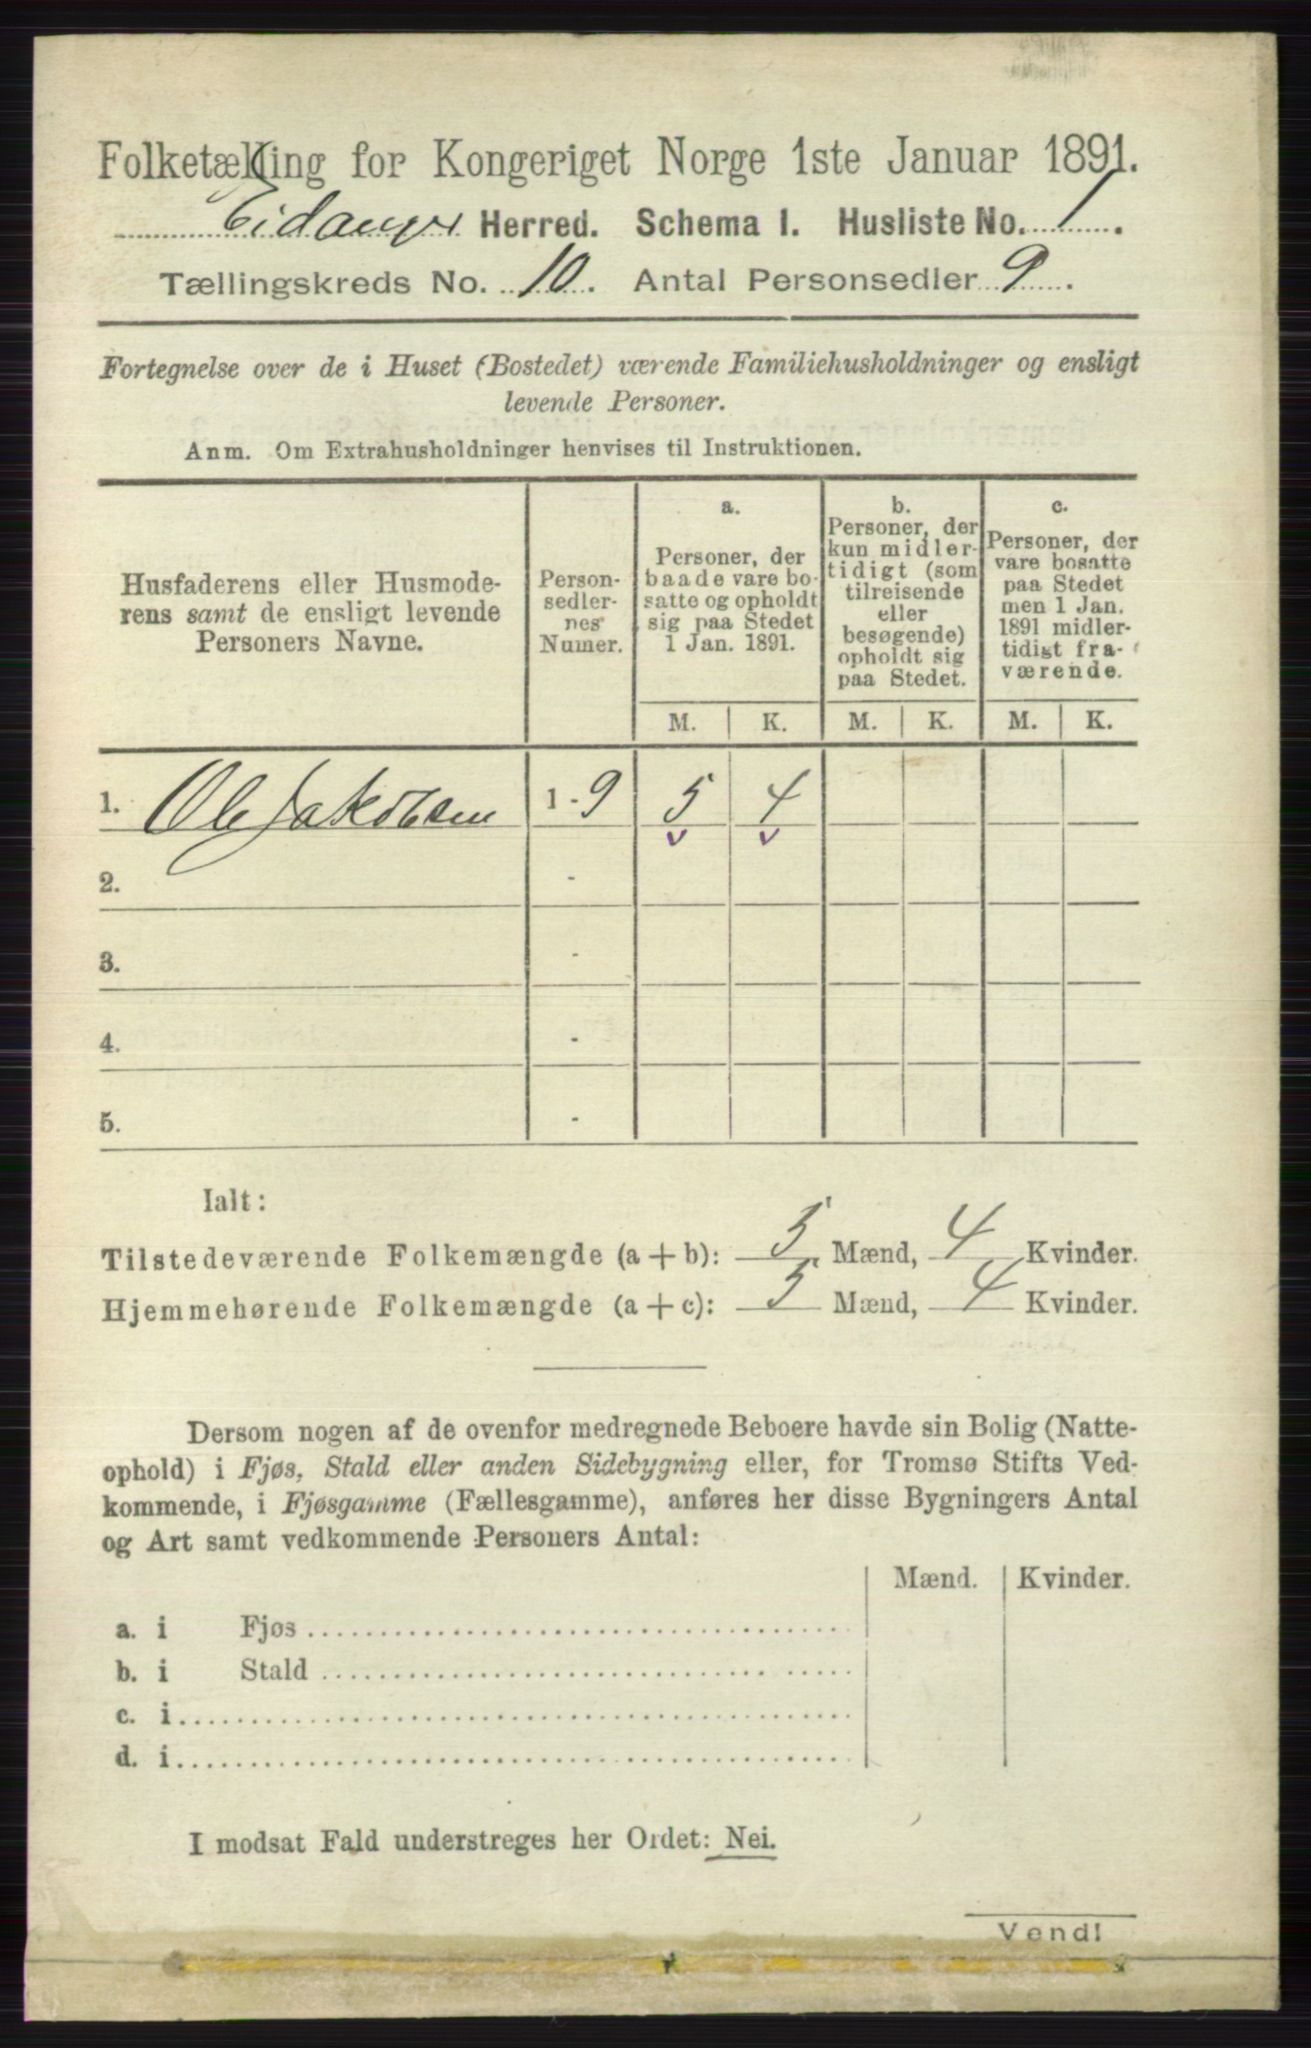 Folketælling for Kongeriget Norge 1ste Januar 1891.
Eidanger Herred. Schema I. Husliste No. 1.
Tællingskreds No. 10. Antal Personsedler 9.
Fortegnelse over de i Huset (Bostedet) værende Familiehusholdninger og ensligt
levende Personer.
Anm. Om Extrahusholdninger henvises til Instruktionen.
Husfaderens eller Husmode-
rens samt de ensligt levende
Personers Navne.
Person-
sedler-
nes
Numer.
a.
Personer, der
baade vare bo-
satte og opholdt
sig paa Stedet
1 Jan. 1891.
b.
Personer, der
kun midler-
tidigt (som
tilreisende
eller
besøgende)
opholdt sig
paa Stedet.
c.
Personer, der
vare bosatte
paa Stedet
men 1 Jan.
1891 midler-
tidigt fra-
værende.
M. K. M. K. M. K.
1. Ole Jakobsen 1-9 5 4
2. -
3. -
4. -
5. -
Ialt:
Tilstedeværende Folkemængde (a + b): 5 Mænd, 4 Kvinder.
Hjemmehørende Folkemængde (a + c): 5 Mænd, 4 Kvinder.
Dersom nogen af de ovenfor medregnede Beboere havde sin Bolig (Natte-
ophold) i Fjøs, Stald eller anden Sidebygning eller, for Tromsø Stifts Ved-
kommende, i Fjøsgamme (Fællesgamme), anføres her disse Bygningers Antal
og Art samt vedkommende Personers Antal:
Mænd. Kvinder.
a. i Fjøs
b. i Stald
c. i
d. i
I modsat Fald understreges her Ordet: Nei.
Vend!